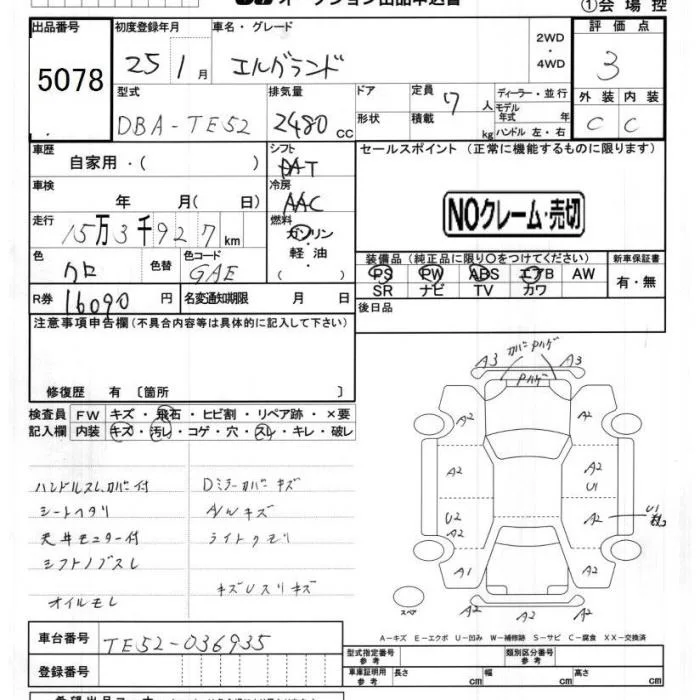 オークション出品申込書
①会場控
出品番号 初度登録年月 車名・グレード 評価点
5078 25 1月 エルグランド 2WD・4WD 3
型式 排気量 ドア 定員 7人 ディーラー・並行 外装 内装
DBA-TE52 2480cc 形状 積載 kg モデル年式 年 C C
ハンドル 左・右
車歴 シフト セールスポイント (正常に機能するものに限ります)
自家用・( ) DAT
車検 冷房
年 月( 日) AAC
NOクレーム・売切
走行 燃料
15万3千927km ガソリン・軽油
色 色替 色コード ( )
クロ GAE
装備品(純正品に限り○をつけてください) 新車保証書
PS PW ABS エアB AW 有・無
SR ナビ TV カワ
R券 16090円 名変通知期限 月 日 後日品
注意事項申告欄(不具合内容等は具体的に記入して下さい)
修復歴 有 〔箇所 〕
検査員記入欄 FW キズ・飛石・ヒビ割・リペア跡・×要
内装 キズ・汚レ・コゲ・穴・スレ・キレ・破レ
ハンドルスレカバー付 Dミラーカバーキズ
シートヘタリ A/Wキズ
天井モニター付 ライトクモリ
シフトノブスレ
オイルモレ
A3 カバーPハゲ A3
Pハゲ
A2 A2
A2 A2
U1
U2 A2 U1
A2
A1 A2
A2 A2
スペア
A-キズ E-エクボ U-凹み W-補修跡 S-サビ C-腐食 XX-交換済
車台番号 TE52-036935
登録番号
型式指定番号 参考 類別区分番号 参考
車庫証明用 参考 長さ cm 幅 cm 高さ cm